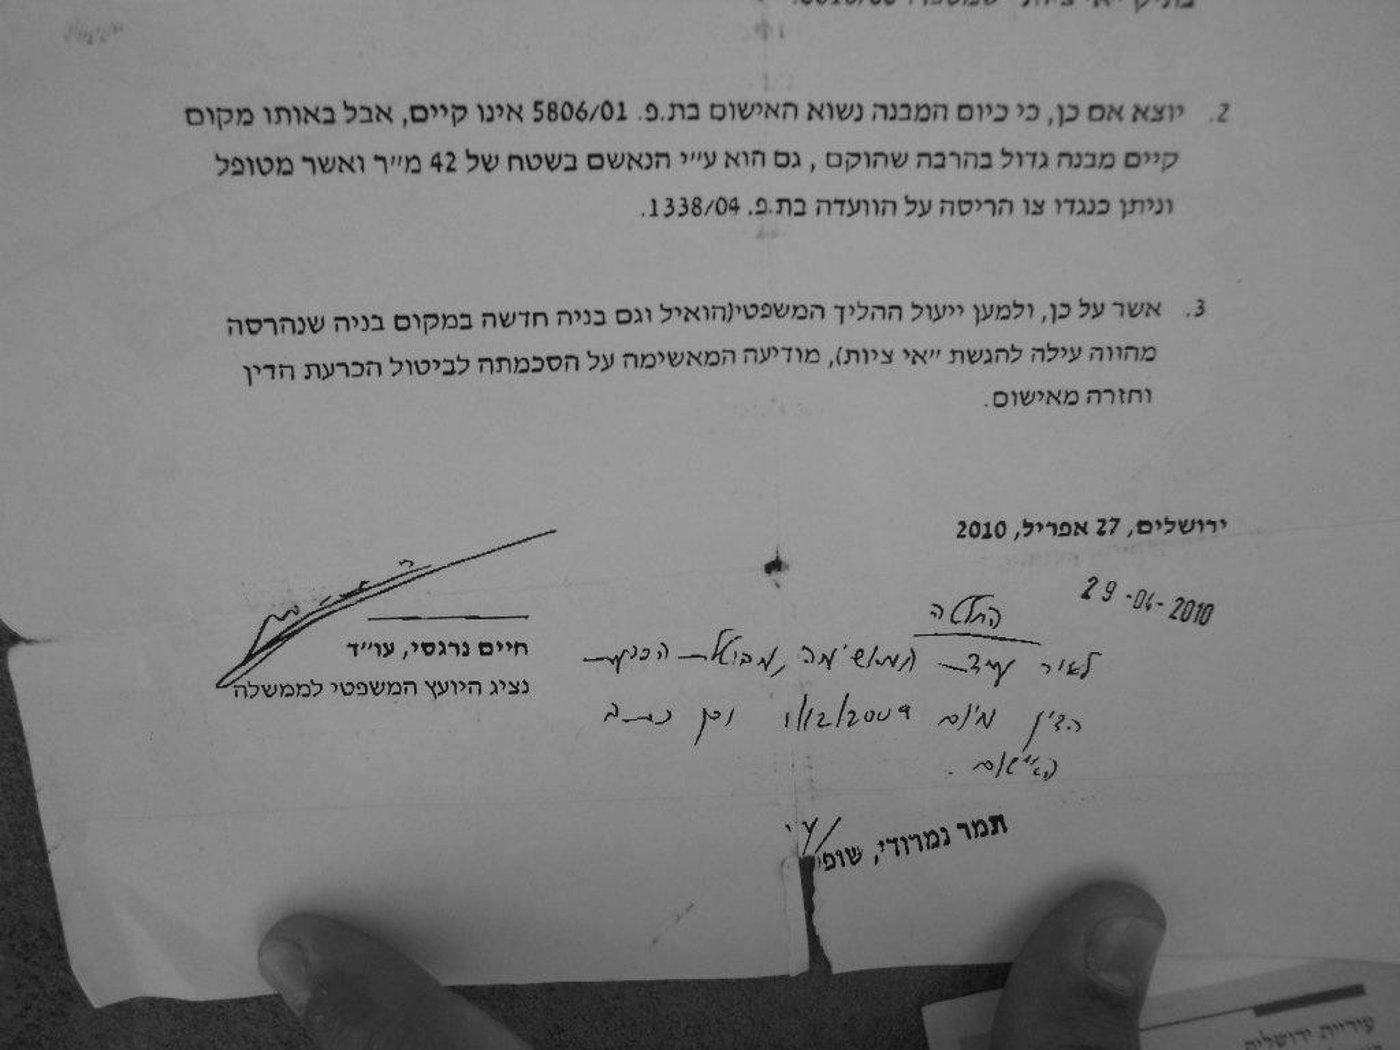 2. יוצא אם כן, כי כיום המבנה נשוא האישום בת.פ. 5806/01 אינו קיים, אבל באותו מקום
קיים מבנה גדול בהרבה שהוקם , גם הוא ע״י הנאשם בשטח של 42 מ״ר ואשר מטופל
וניתן כנגדו צו הריסה על הוועדה בת.פ. 1338/04.
3. אשר על כן, ולמען ייעול ההליך המשפטי(הואיל וגם בניה חדשה במקום בניה שנהרסה
מהווה עילה להגשת ״אי ציות), מודיעה המאשימה על הסכמתה לביטול הכרעת הדין
וחזרה מאישום.
ירושלים, 27 אפריל, 2010
29-04-2010
החלטה
לאור עמדת המאשימה, מבוטלת הכרעת
הדין מיום 1/12/2009 וכן כתב
האישום.
חיים נרגסי, עו״ד
נציג היועץ המשפטי לממשלה
תמר נמרודי, שופ
עיריית ירושלים